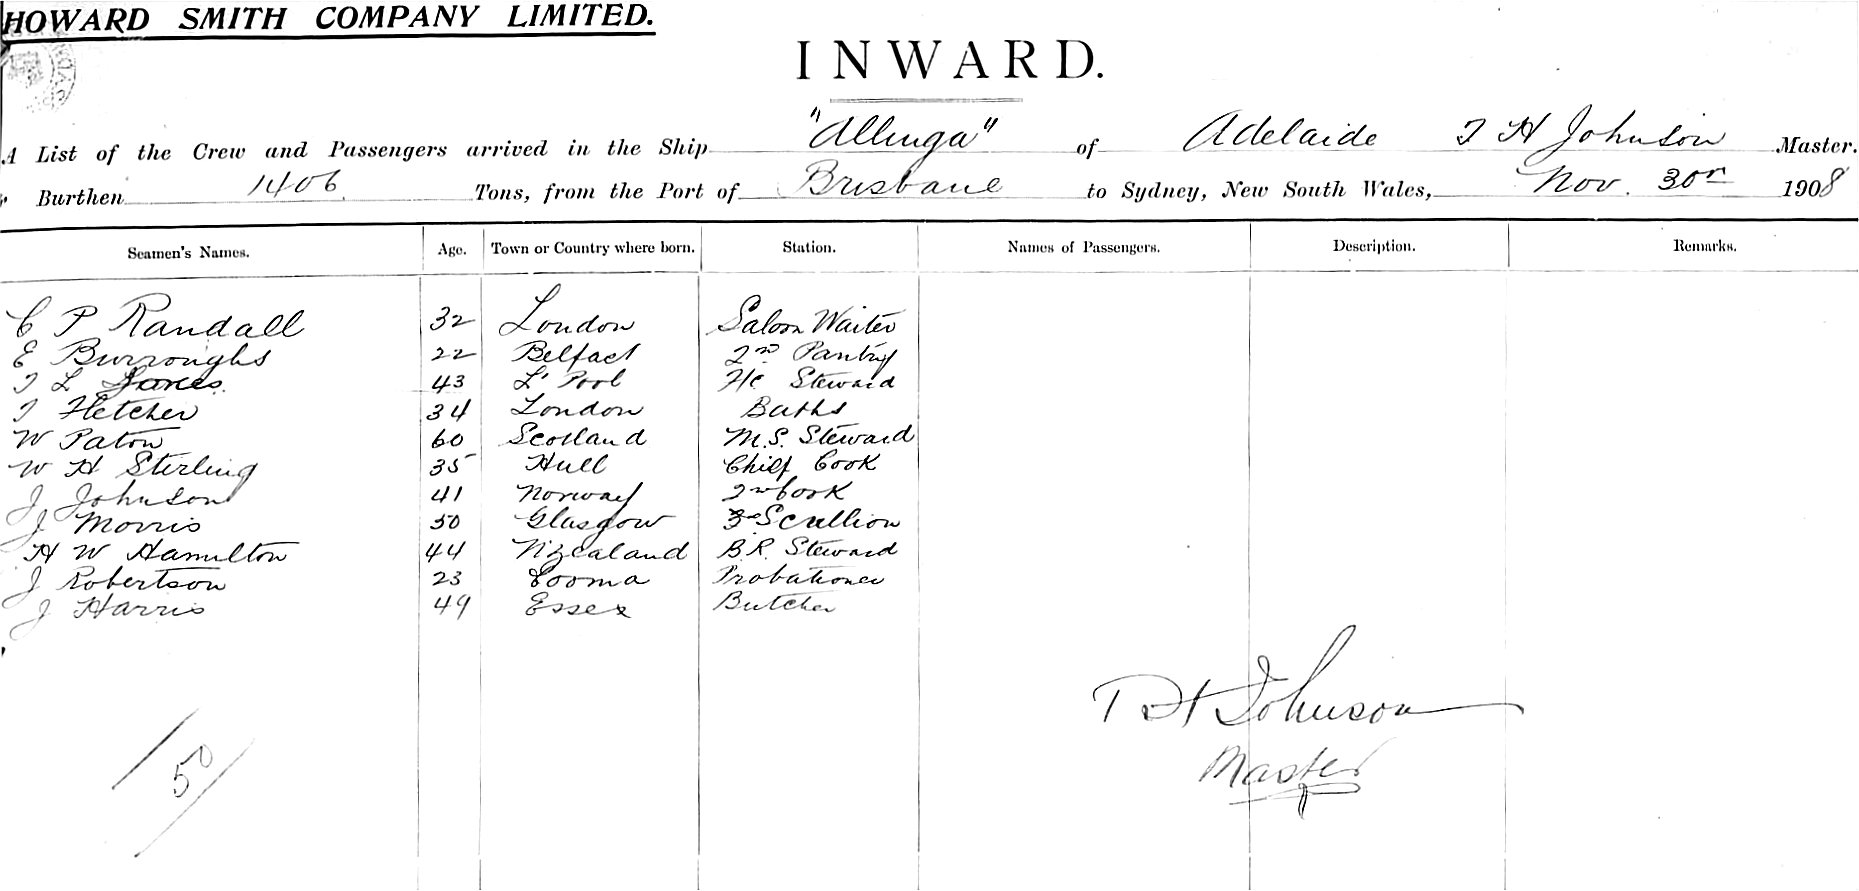 HOWARD SMITH COMPANY LIMITED.
INWARD.
A List of the Crew and Passengers arrived in the Ship "Allinga" of Adelaide T H Johnson Master.
Burthen 1406 Tons, from the Port of Brisbane to Sydney, New South Wales, Nov. 30th 1908
Seamen's Names. Age. Town or Country where born. Station. Names of Passengers. Description. Remarks.
C P Randall 32 London Saloon Waiter
E Burroughs 22 Belfast 2nd Pantry
T L Jones 43 L'Pool F.C. Steward
T Fletcher 34 London Baths
W Paton 60 Scotland M.S. Steward
W H Sterling 35 Hull Chief Cook
J Johnson 41 Norway 2nd Cook
J Morris 50 Glasgow Scullion
H W Hamilton 44 N'Zealand B.R. Steward
J Robertson 23 Cooma Probationer
J Harris 49 Essex Butcher
T H Johnson
Master
/ 50 /